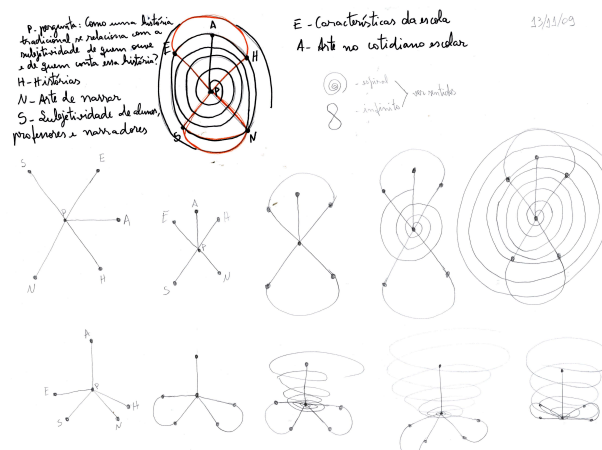 P- pergunta: Como uma história
tradicional se relaciona com a
subjetividade de quem ouve
e de quem conta essa história?
H- Histórias
N- Arte de narrar
S- Subjetividade de alunos,
professores e narradores
A
E
H
P
S
N
E - Características da escola
A- Arte no cotidiano escolar
13/11/09
- espiral
- infinito
S
E
P
A
N
H
A
E
H
P
S
N
A
E
P
H
S
N